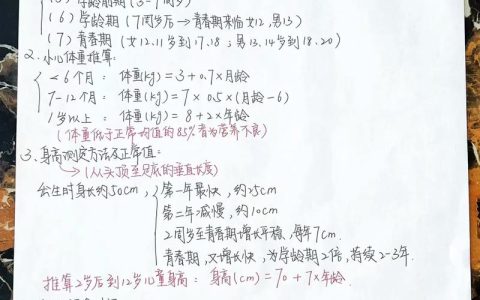 (5) 学龄前期 (3-7周岁)
(6) 学龄期 (7周岁后→青春期来临女12,男13)
(7) 青春期 (女12.11岁到17.18;男13.14岁到18.20)
2.小儿体重推算:
<6个月: 体重(kg)=3+0.7×月龄
7-12个月: 体重(kg)=7×0.5×(月龄-6)
1岁以上: 体重(kg)=8+2×年龄
(体重低于正常均值的85%者为营养不良)
3.身高测定方法及正常值:
(从头顶至足底的垂直长度)
出生时身长约50cm,
第一年最快,约25cm
第二年减慢,约10cm
2周岁至青春期增长平稳,每年7cm.
青春期,又增长快,为学龄期2倍,持续2-3年.
推算2岁后到12岁儿童身高: 身高(cm)=70+7×年龄.